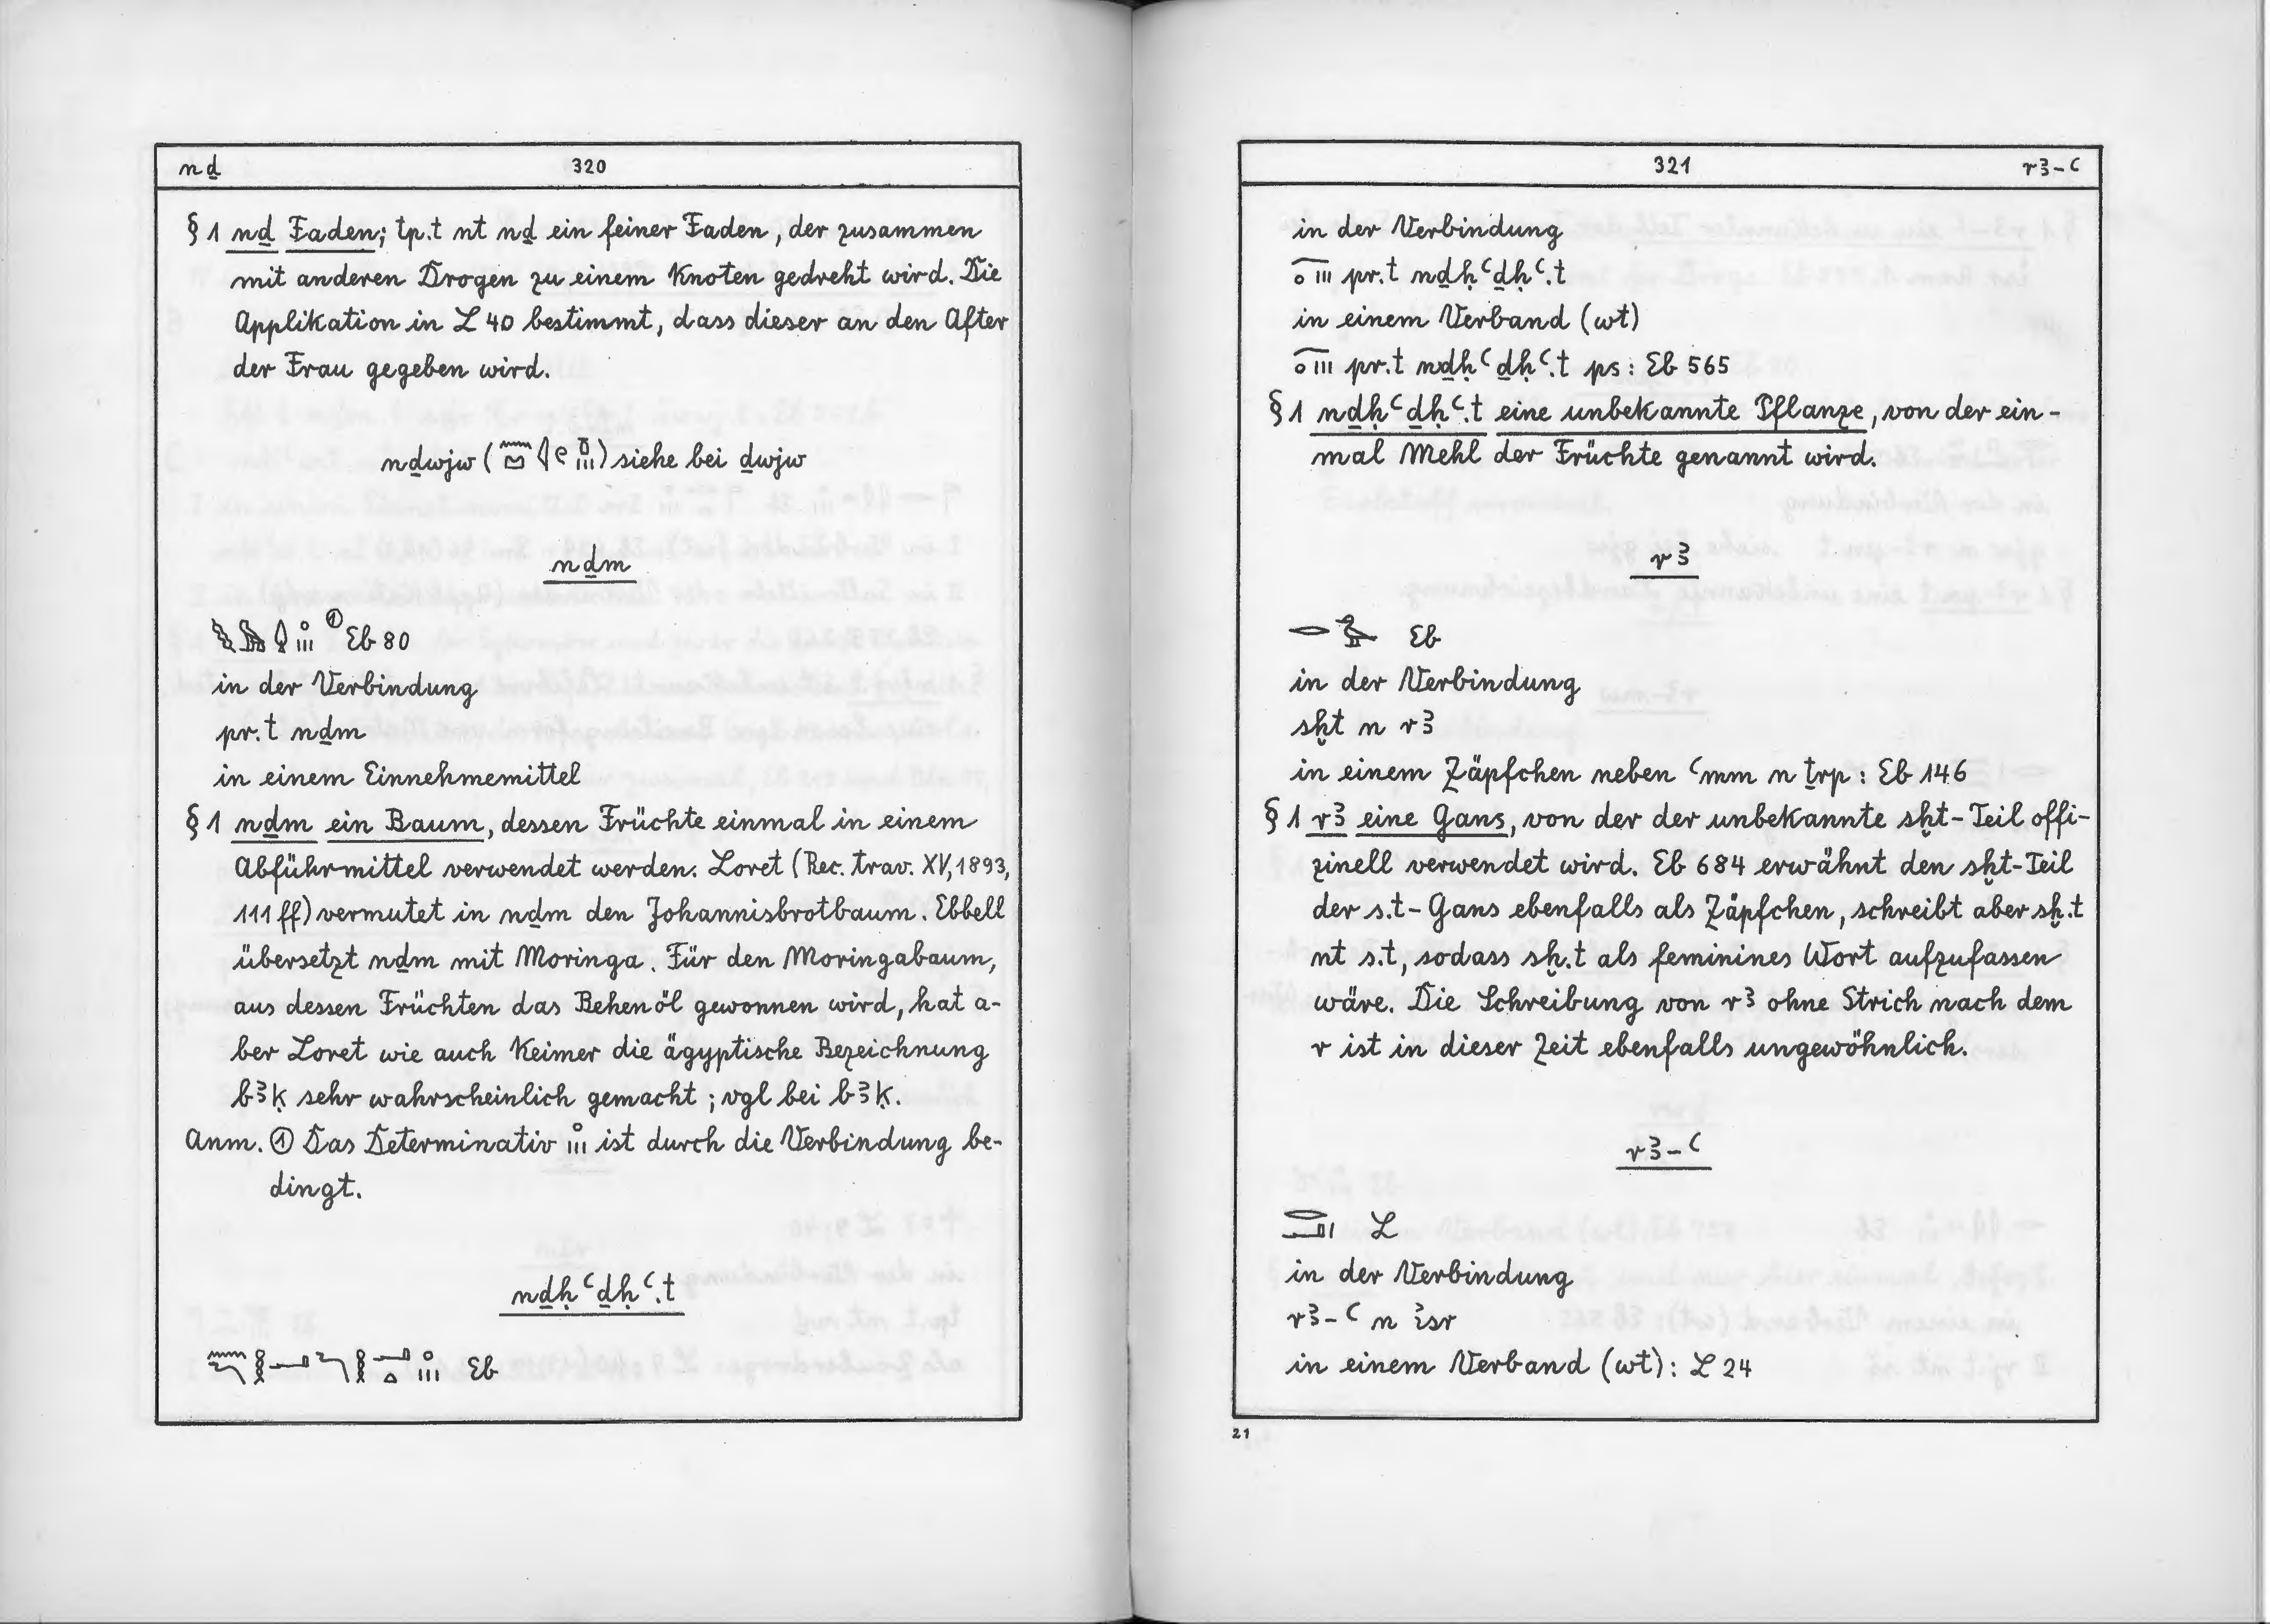 nḏ 320
§ 1 nḏ Faden; tp.t nt nḏ ein feiner Faden, der zusammen
mit anderen Drogen zu einem Knoten gedreht wird. Die
Applikation in L 40 bestimmt, dass dieser an den After
der Frau gegeben wird.
nḏwjw ( ) siehe bei ḏwjw
nḏm
① Eb 80
in der Verbindung
pr.t nḏm
in einem Einnehmemittel
§ 1 nḏm ein Baum, dessen Früchte einmal in einem
Abführmittel verwendet werden. Loret (Rec. trav. XV, 1893,
111 ff) vermutet in nḏm den Johannisbrotbaum. Ebbell
übersetzt nḏm mit Moringa. Für den Moringabaum,
aus dessen Früchten das Behenöl gewonnen wird, hat a-
ber Loret wie auch Keimer die ägyptische Bezeichnung
bꜣḳ sehr wahrscheinlich gemacht; vgl bei bꜣḳ.
Anm. ① Das Determinativ ist durch die Verbindung be-
dingt.
nḏḥꜥḏḥꜥ.t
Eb
321 rꜣ-ꜥ
in der Verbindung
pr.t nḏḥꜥḏḥꜥ.t
in einem Verband (wt)
pr.t nḏḥꜥḏḥꜥ.t ps: Eb 565
§ 1 nḏḥꜥḏḥꜥ.t eine unbekannte Pflanze, von der ein-
mal Mehl der Früchte genannt wird.
rꜣ
Eb
in der Verbindung
sḫt n rꜣ
in einem Zäpfchen neben ꜥmm n ṯrp: Eb 146
§ 1 rꜣ eine Gans, von der der unbekannte sḫt-Teil offi-
zinell verwendet wird. Eb 684 erwähnt den sḫt-Teil
der s.t-Gans ebenfalls als Zäpfchen, schreibt aber sḫ.t
nt s.t, sodass sḫ.t als feminines Wort aufzufassen
wäre. Die Schreibung von rꜣ ohne Strich nach dem
r ist in dieser Zeit ebenfalls ungewöhnlich.
rꜣ-ꜥ
L
in der Verbindung
rꜣ-ꜥ n isr
in einem Verband (wt): L 24
21